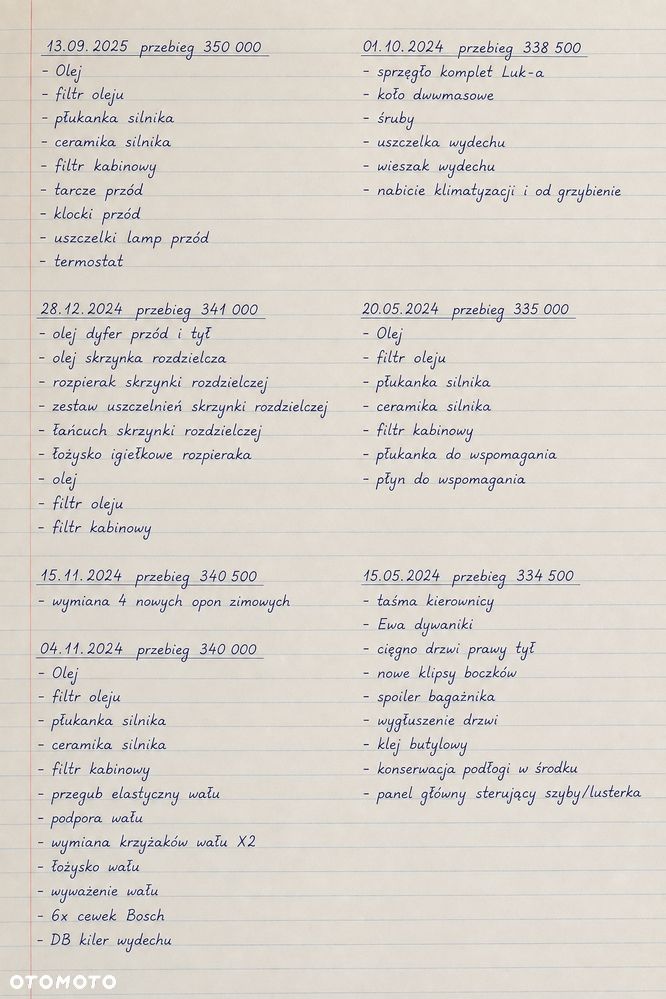 13.09.2025 przebieg 350 000
- Olej
- filtr oleju
- płukanka silnika
- ceramika silnika
- filtr kabinowy
- tarcze przód
- klocki przód
- uszczelki lamp przód
- termostat
28.12.2024 przebieg 341 000
- olej dyfer przód i tył
- olej skrzynka rozdzielcza
- rozpierak skrzynki rozdzielczej
- zestaw uszczelnień skrzynki rozdzielczej
- łańcuch skrzynki rozdzielczej
- łożysko igiełkowe rozpieraka
- olej
- filtr oleju
- filtr kabinowy
15.11.2024 przebieg 340 500
- wymiana 4 nowych opon zimowych
04.11.2024 przebieg 340 000
- Olej
- filtr oleju
- płukanka silnika
- ceramika silnika
- filtr kabinowy
- przegub elastyczny wału
- podpora wału
- wymiana krzyżaków wału X2
- łożysko wału
- wyważenie wału
- 6x cewek Bosch
- DB kiler wydechu
01.10.2024 przebieg 338 500
- sprzęgło komplet Luk-a
- koło dwwmasowe
- śruby
- uszczelka wydechu
- wieszak wydechu
- nabicie klimatyzacji i od grzybienie
20.05.2024 przebieg 335 000
- Olej
- filtr oleju
- płukanka silnika
- ceramika silnika
- filtr kabinowy
- płukanka do wspomagania
- płyn do wspomagania
15.05.2024 przebieg 334 500
- taśma kierownicy
- Ewa dywaniki
- cięgno drzwi prawy tył
- nowe klipsy boczków
- spoiler bagażnika
- wygłuszenie drzwi
- klej butylowy
- konserwacja podłogi w środku
- panel główny sterujący szyby/lusterka
OTOMOTO